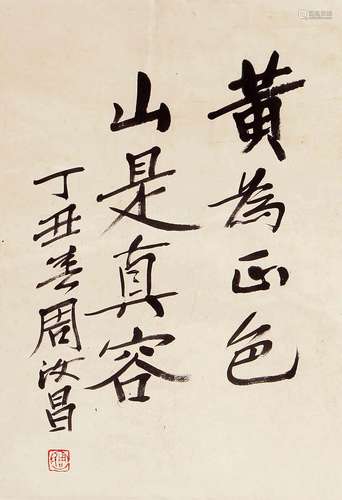 黃為正色
山是真容
丁丑春周汝昌